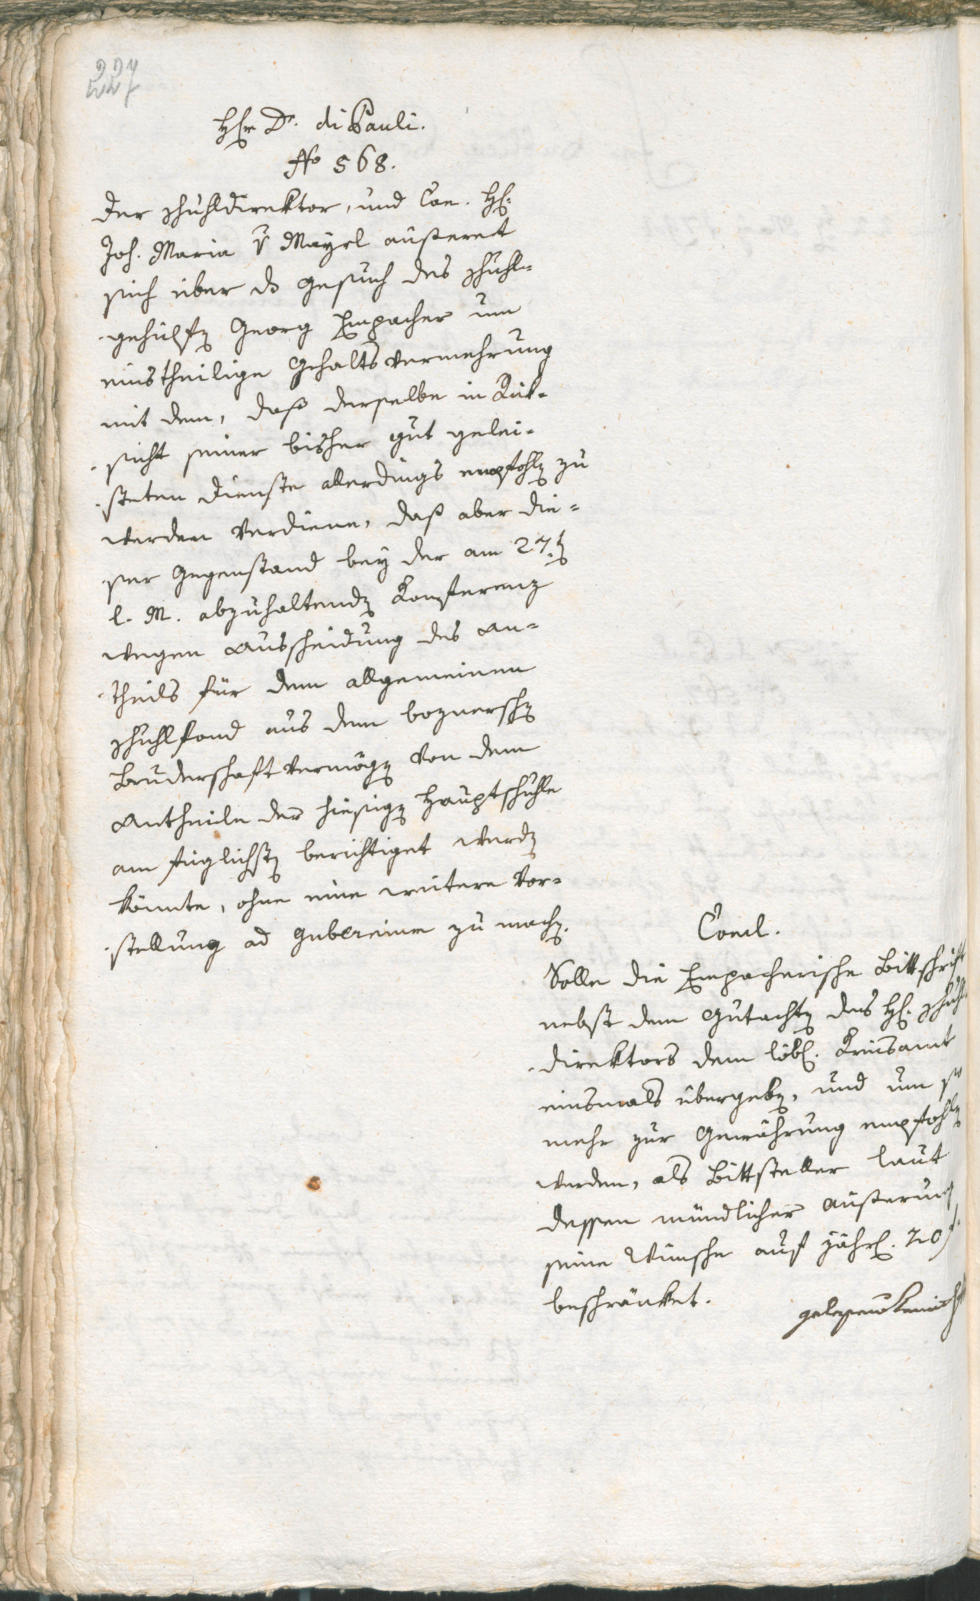 227
H̄r Dr. di Pauli.
No 568.
Der Schuhldirektor, und Con. H:
Joh. Maria v Mayrl äusseret
sich über ds Gesuch des Schuhl-
gehülfen Georg Empacher um
einstheilige Gehalts Vermehrung
mit dem, daß derselbe in Rük-
sicht seiner bisher gut gelei-
steten Dienste allerdings empfohlen zu
werden verdiene, daß aber die-
ser Gegenstand bey der am 27.ten
l. M. abzuhaltenden Konferenz
wegen Ausscheidung des An-
theils für dem allgemeinen
Schuhlfond aus dem boznerschen
Bruderschaft Vermögen von dem
Antheile der hiesigen Hauptschuhle
am füglichsten berichtiget werden
könnte, ohne eine weitere Vor-
stellung ad Gubernium zu machen.
Concl.
Solle die Empacherische Bittschrift
nebst dem Gutachten des H: Schuhl
direktors dem löbl. Kreisamt
einsmals übergeben, und um so
mehr zur Gewährung empfohlen
werden, als Bittsteller laut
dessen mündlicher Äusserung
seine Wünsche auf jährl. 20 f.
beschränket.